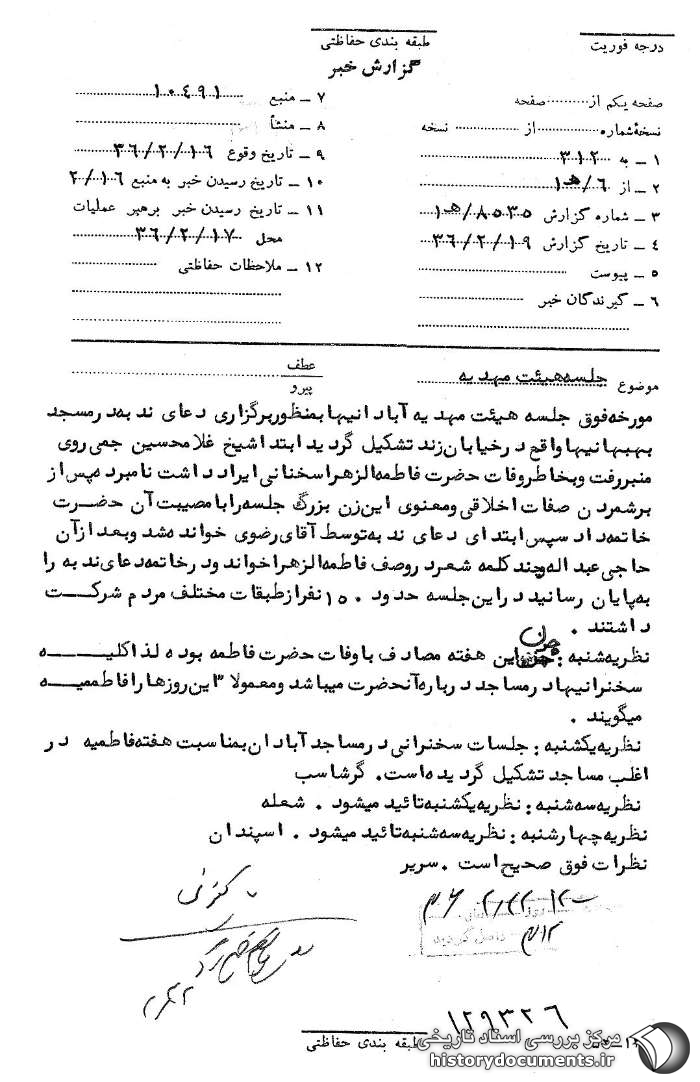 درجه فوریت
طبقه بندی حفاظتی
گزارش خبر
صفحه یکم از ............ صفحه
نسخهٔ شماره ............ از ............ نسخه
۱ ــ به ۳۱۲
۲ ــ از ۶/ﻫ۱
۳ ــ شماره گزارش ۸۵۳۵/ﻫ۱
۴ ــ تاریخ گزارش ۳۶/۲/۱۹
۵ ــ پیوست
۶ ــ گیرندگان خبر
۷ ــ منبع ۱۰۴۹۱
۸ ــ منشأ
۹ ــ تاریخ وقوع ۳۶/۲/۱۶
۱۰ ــ تاریخ رسیدن خبر به منبع ۲/۱۶
۱۱ ــ تاریخ رسیدن خبر برهبر عملیات
محل ۳۶/۲/۱۷
۱۲ ــ ملاحظات حفاظتی
موضوع جلسه هیئت مهدیه
عطف
پیرو
مورخه فوق جلسه هیئت مهدیه آبادانیها بمنظور برگزاری دعای ندبه در مسجد
بهبهانیها واقع در خیابان زند تشکیل گردید ابتدا شیخ غلامحسین جمی روی
منبر رفت و بخاطر وفات حضرت فاطمه الزهرا سخنانی ایراد داشت نامبرده پس از
برشمردن صفات اخلاقی و معنوی این زن بزرگ جلسه را با مصیبت آن حضرت
خاتمه داد سپس ابتدای دعای ندبه توسط آقای رضوی خوانده شد و بعد از آن
حاجی عبداله چند کلمه شعر در وصف فاطمه الزهرا خواند و در خاتمه دعای ندبه را
به پایان رسانید در این جلسه حدود ۱۵۰ نفر از طبقات مختلف مردم شرکت
داشتند .
نظریه شنبه : چون این هفته مصادف با وفات حضرت فاطمه بوده لذا کلیه
سخنرانیها در مساجد درباره آنحضرت میباشد و معمولا ۳ این روزها را فاطمیه
میگویند .
نظریه یکشنبه : جلسات سخنرانی در مساجد آبادان بمناسبت هفته فاطمیه در
اغلب مساجد تشکیل گردیده است . گرشاسب
نظریه سه شنبه : نظریه یکشنبه تائید میشود . شعله
نظریه چهارشنبه : نظریه سه شنبه تائید میشود . اسپندان
نظرات فوق صحیح است . سریر
واصل گردید
۳۱۲
۱۲۹۳۲۶
طبقه بندی حفاظتی
مرکز بررسی اسناد تاریخی
historydocuments.ir